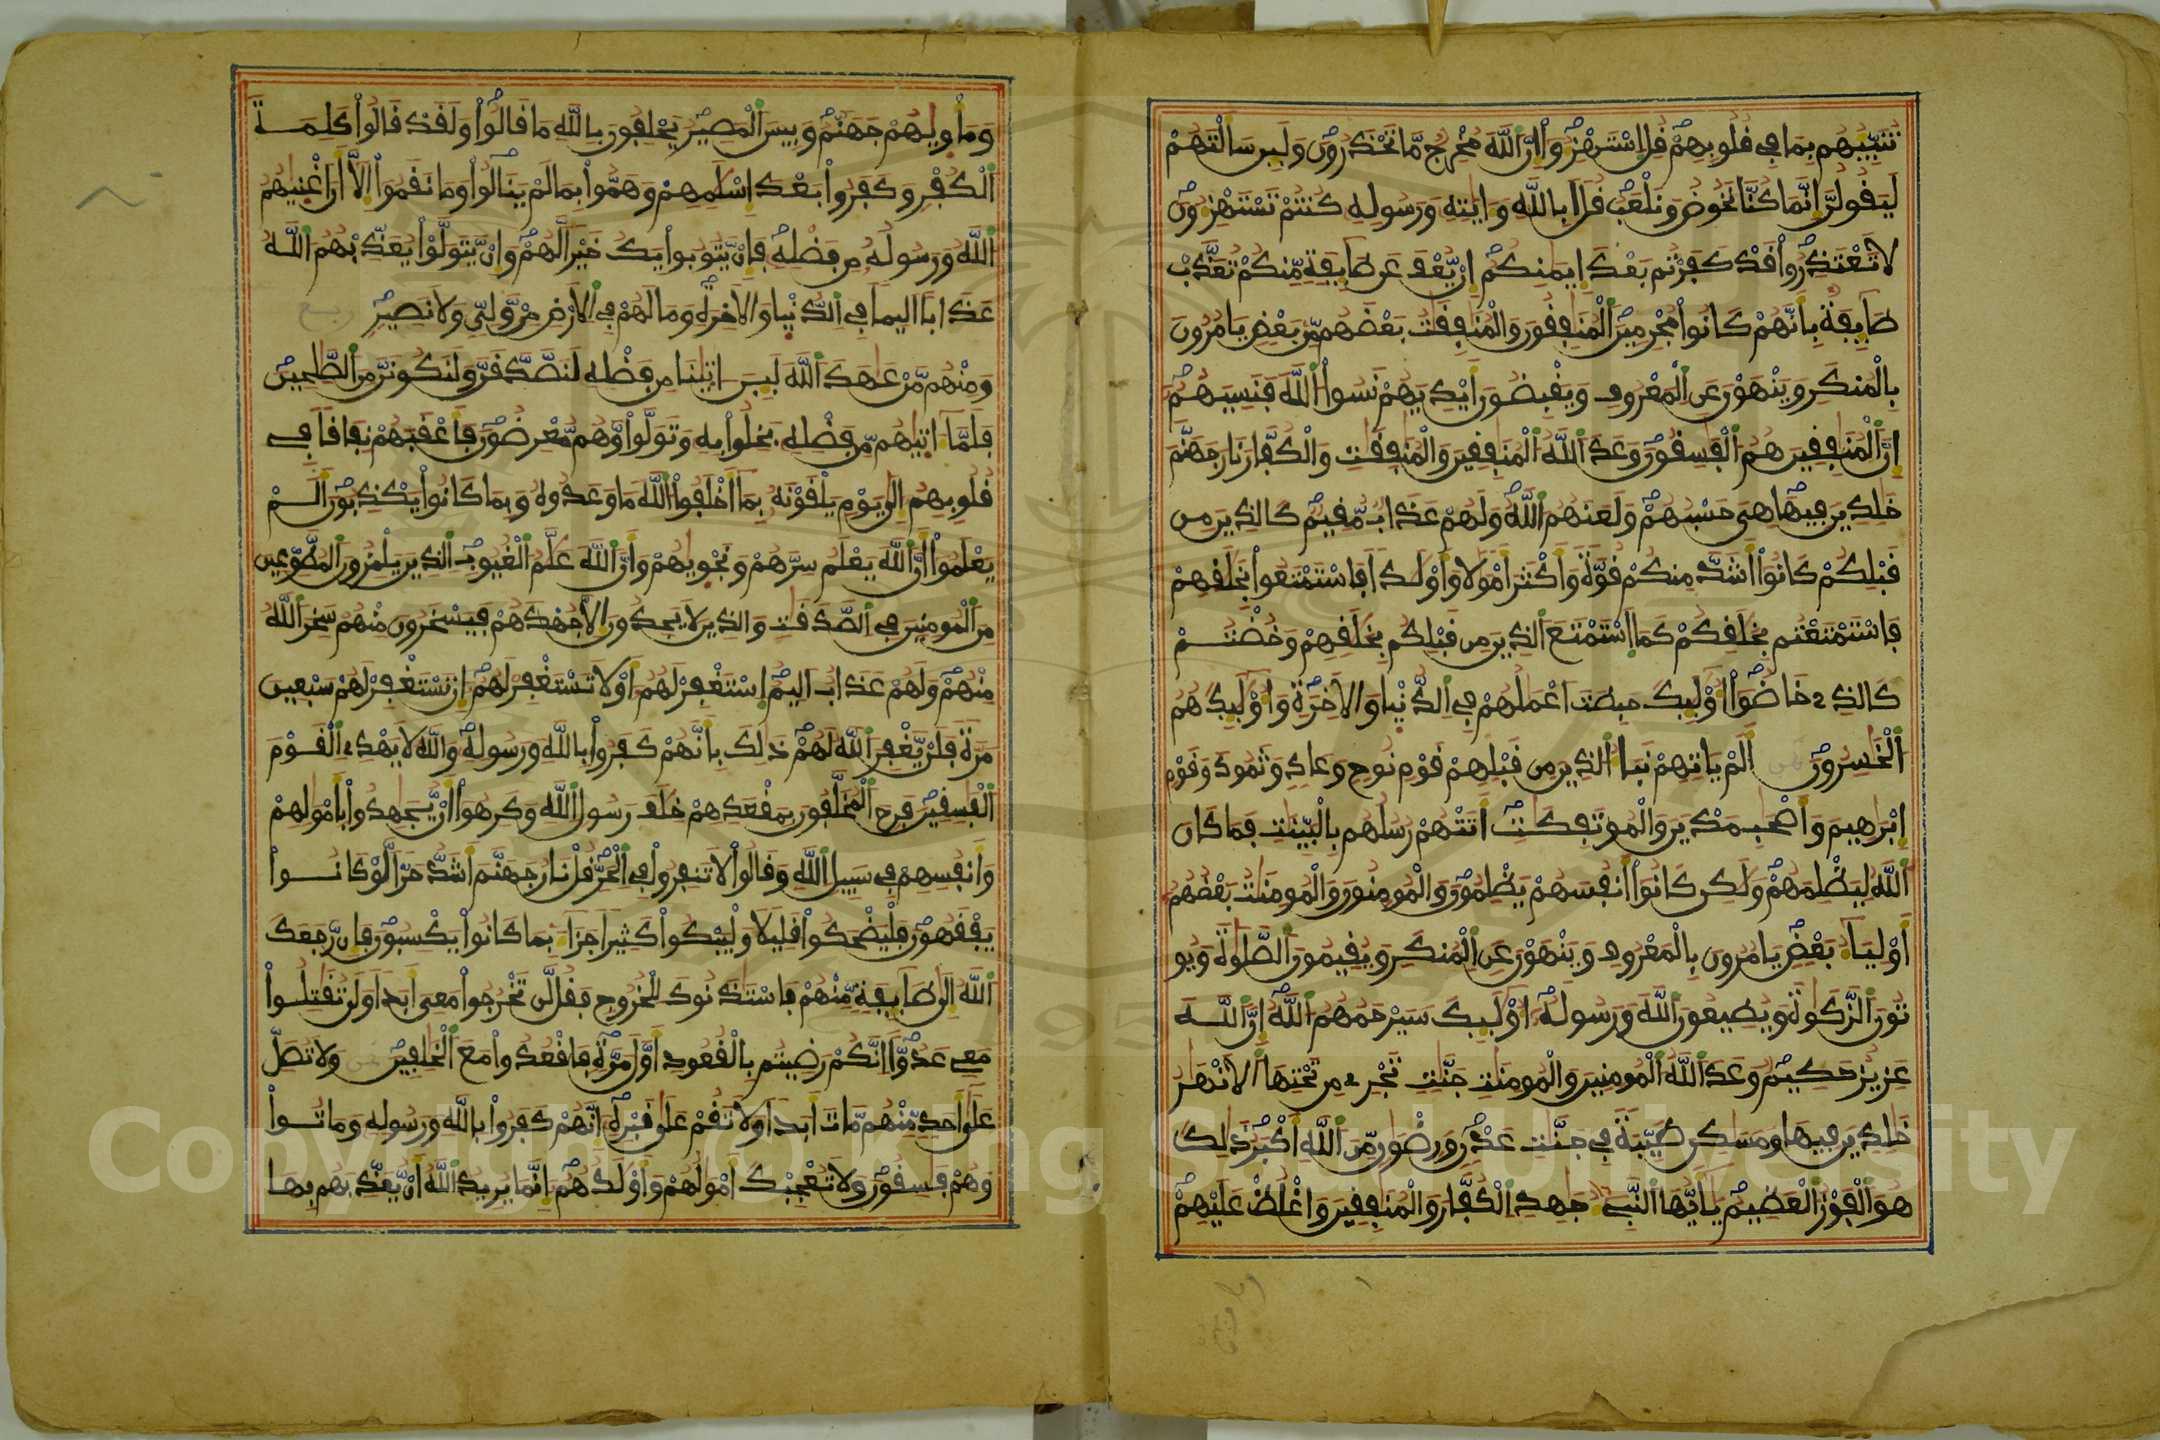 تنبيهم بما في قلوبهم قل استهزءوا ان الله مخرج ما تحذرون ولين سالتهم
ليقولن انما كنا نخوض ونلعب قل ابالله وءايته ورسوله كنتم تستهزءون
لا تعتذروا قد كفرتم بعد ايمنكم ان يعف عن طايفة منكم تعذب
طايفة بانهم كانوا مجرمين المنفقون والمنفقت بعضهم من بعض يامرون
بالمنكر وينهون عن المعروف ويقبضون ايديهم نسوا الله فنسيهم
ان المنفقين هم الفسقون وعد الله المنفقين والمنفقت والكفار نار جهنم
خلدين فيها هي حسبهم ولعنهم الله ولهم عذاب مقيم كالذين من
قبلكم كانوا اشد منكم قوة واكثر امولا واولدا فاستمتعوا بخلفهم
فاستمتعتم بخلفكم كما استمتع الذين من قبلكم بخلفهم وخضتم
كالذي خاضوا اوليك حبطت اعملهم في الدنيا والاخرة واوليك هم
الخسرون الم ياتهم نبا الذين من قبلهم قوم نوح وعاد وثمود وقوم
ابرهيم واصحب مدين والموتفكت اتتهم رسلهم بالبينت فما كان
الله ليظلمهم ولكن كانوا انفسهم يظلمون والمومنون والمومنت بعضهم
اولياء بعض يامرون بالمعروف وينهون عن المنكر ويقيمون الصلوة ويو
تون الزكوة ويطيعون الله ورسوله اوليك سيرحمهم الله ان الله
عزيز حكيم وعد الله المومنين والمومنت جنت تجري من تحتها الانهر
خلدين فيها ومسكن طيبة في جنت عدن ورضون من الله اكبر ذلك
هو الفوز العظيم يايها النبي جهد الكفار والمنفقين واغلظ عليهم
وماويهم جهنم وبيس المصير يحلفون بالله ما قالوا ولقد قالوا كلمة
الكفر وكفروا بعد اسلمهم وهموا بما لم ينالوا وما نقموا الا ان اغنيهم
الله ورسوله من فضله فان يتوبوا يك خيرا لهم وان يتولوا يعذبهم الله
عذابا اليما في الدنيا والاخرة وما لهم في الارض من ولي ولا نصير ربع
ومنهم من عهد الله لين اتينا من فضله لنصدقن ولنكونن من الصلحين
فلما اتيهم من فضله بخلوا به وتولوا وهم معرضون فاعقبهم نفاقا في
قلوبهم الى يوم يلقونه بما اخلفوا الله ما وعدوه وبما كانوا يكذبون الم
يعلموا ان الله يعلم سرهم ونجويهم وان الله علم الغيوب الذين يلمزون المطوعين
من المومنين في الصدقت والذين لا يجدون الا جهدهم فيسخرون منهم سخر الله
منهم ولهم عذاب اليم استغفر لهم او لا تستغفر لهم ان تستغفر لهم سبعين
مرة فلن يغفر الله لهم ذلك بانهم كفروا بالله ورسوله والله لا يهدي القوم
الفسقين فرح المخلفون بمقعدهم خلف رسول الله وكرهوا ان يجهدوا بامولهم
وانفسهم في سبيل الله وقالوا لا تنفروا في الحر قل نار جهنم اشد حرا لو كانوا
يفقهون فليضحكوا قليلا وليبكوا كثيرا جزاء بما كانوا يكسبون فان رجعك
الله الى طايفة منهم فاستذنوك للخروج فقل لن تخرجوا معي ابدا ولن تقتلوا
معي عدوا انكم رضيتم بالقعود اول مرة فاقعدوا مع الخلفين ولا تصل
على احد منهم مات ابدا ولا تقم على قبره انهم كفروا بالله ورسوله وماتوا
وهم فسقون ولا تعجبك امولهم واولدهم انما يريد الله ان يعذبهم بها
Copyright © King Saud University